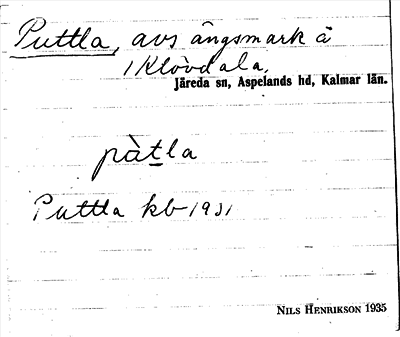 Puttla, avs ängsmark å
1 Klövdala.
Järeda sn, Aspelands hd, Kalmar län.
pàt̲la
Puttla kb 1931
NILS HENRIKSON 1935